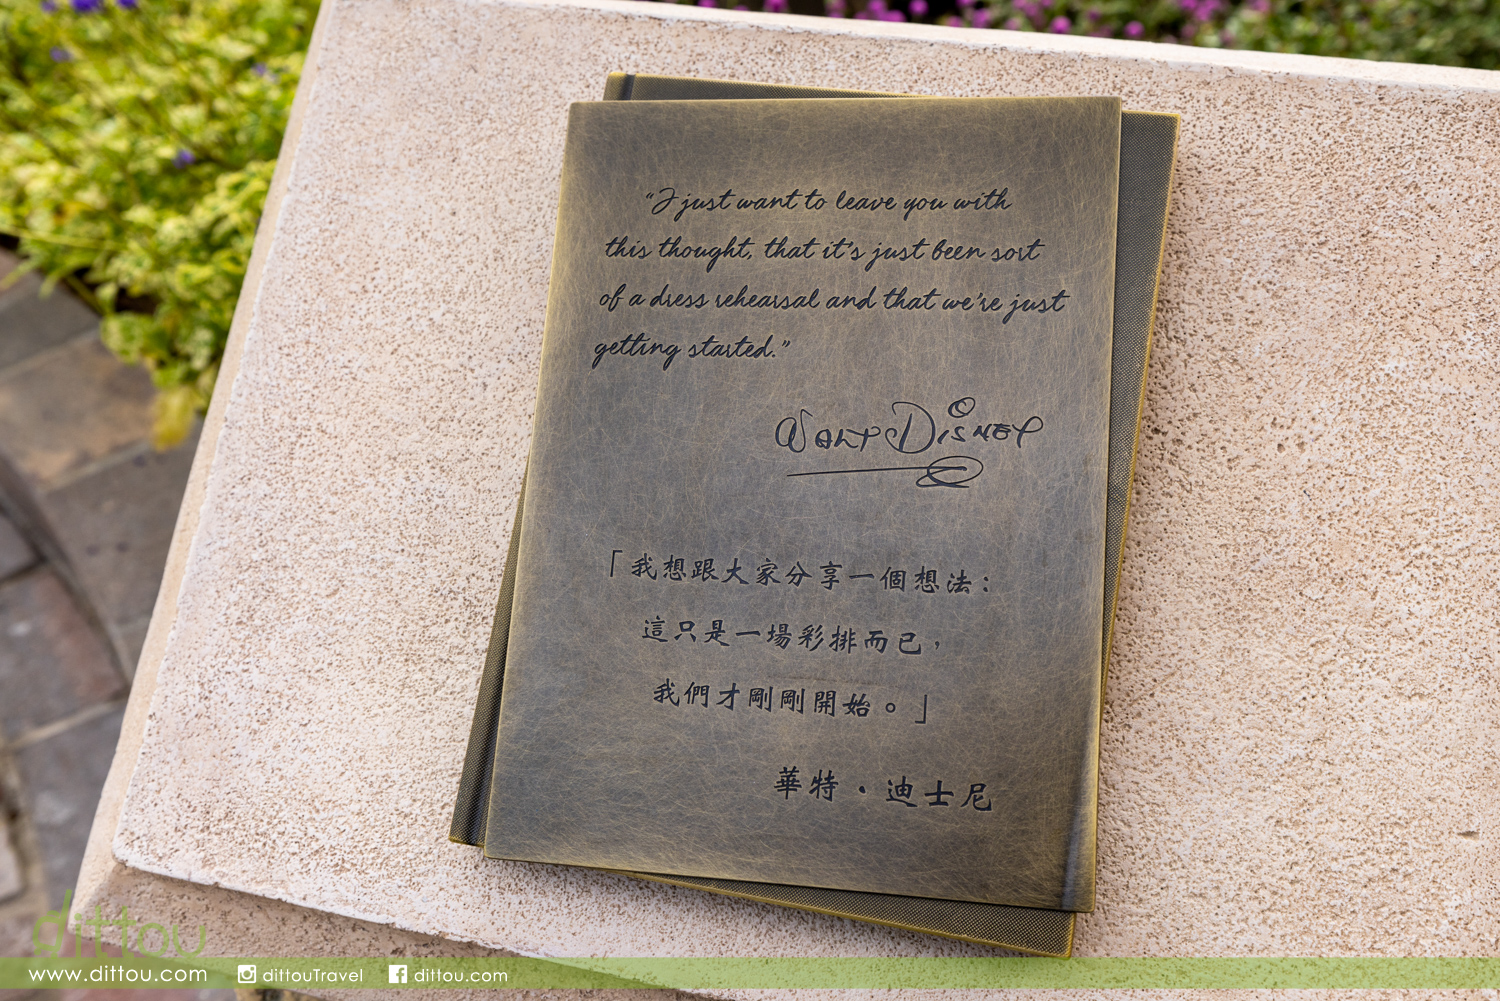 “I just want to leave you with
this thought, that it's just been sort
of a dress rehearsal and that we're just
getting started.”
WALT DISNEY
「我想跟大家分享一個想法：
這只是一場彩排而已，
我們才剛剛開始。」
華特・迪士尼
dittou
www.dittou.com dittouTravel dittou.com